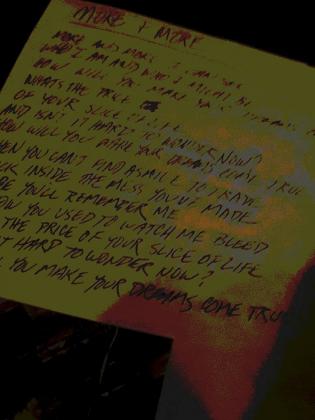 MORE + MORE
MORE AND MORE I
WHO I AM AND WHO I MIGHT BE
HOW WILL YOU MAKE
WHATS THE PRICE
OF YOUR SLICE OF LIFE
AND ISN'T IT HARD TO WONDER NOW?
HOW WILL YOU MAKE YOUR DREAMS COME TRUE
EN YOU CAN'T FIND A SMILE TO TRADE
CK INSIDE THE MESS YOU'VE MADE
BE YOU'LL REMEMBER ME
OW YOU USED TO WATCH ME BLEED
THE PRICE OF YOUR SLICE OF LIFE
T HARD TO WONDER NOW?
YOU MAKE YOUR DREAMS COME TRU